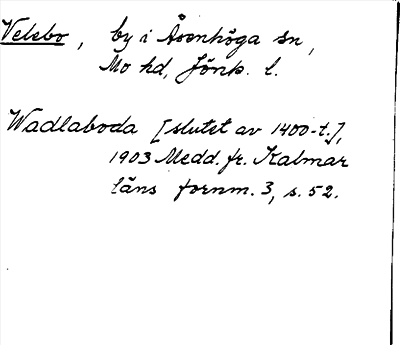 Velebo, by i Åsenhöga sn,
Mo hd, Jönk. l.
Wadlaboda [slutet av 1400-t.],
1903 Medd. fr. Kalmar
läns fornm. 3, s. 52.